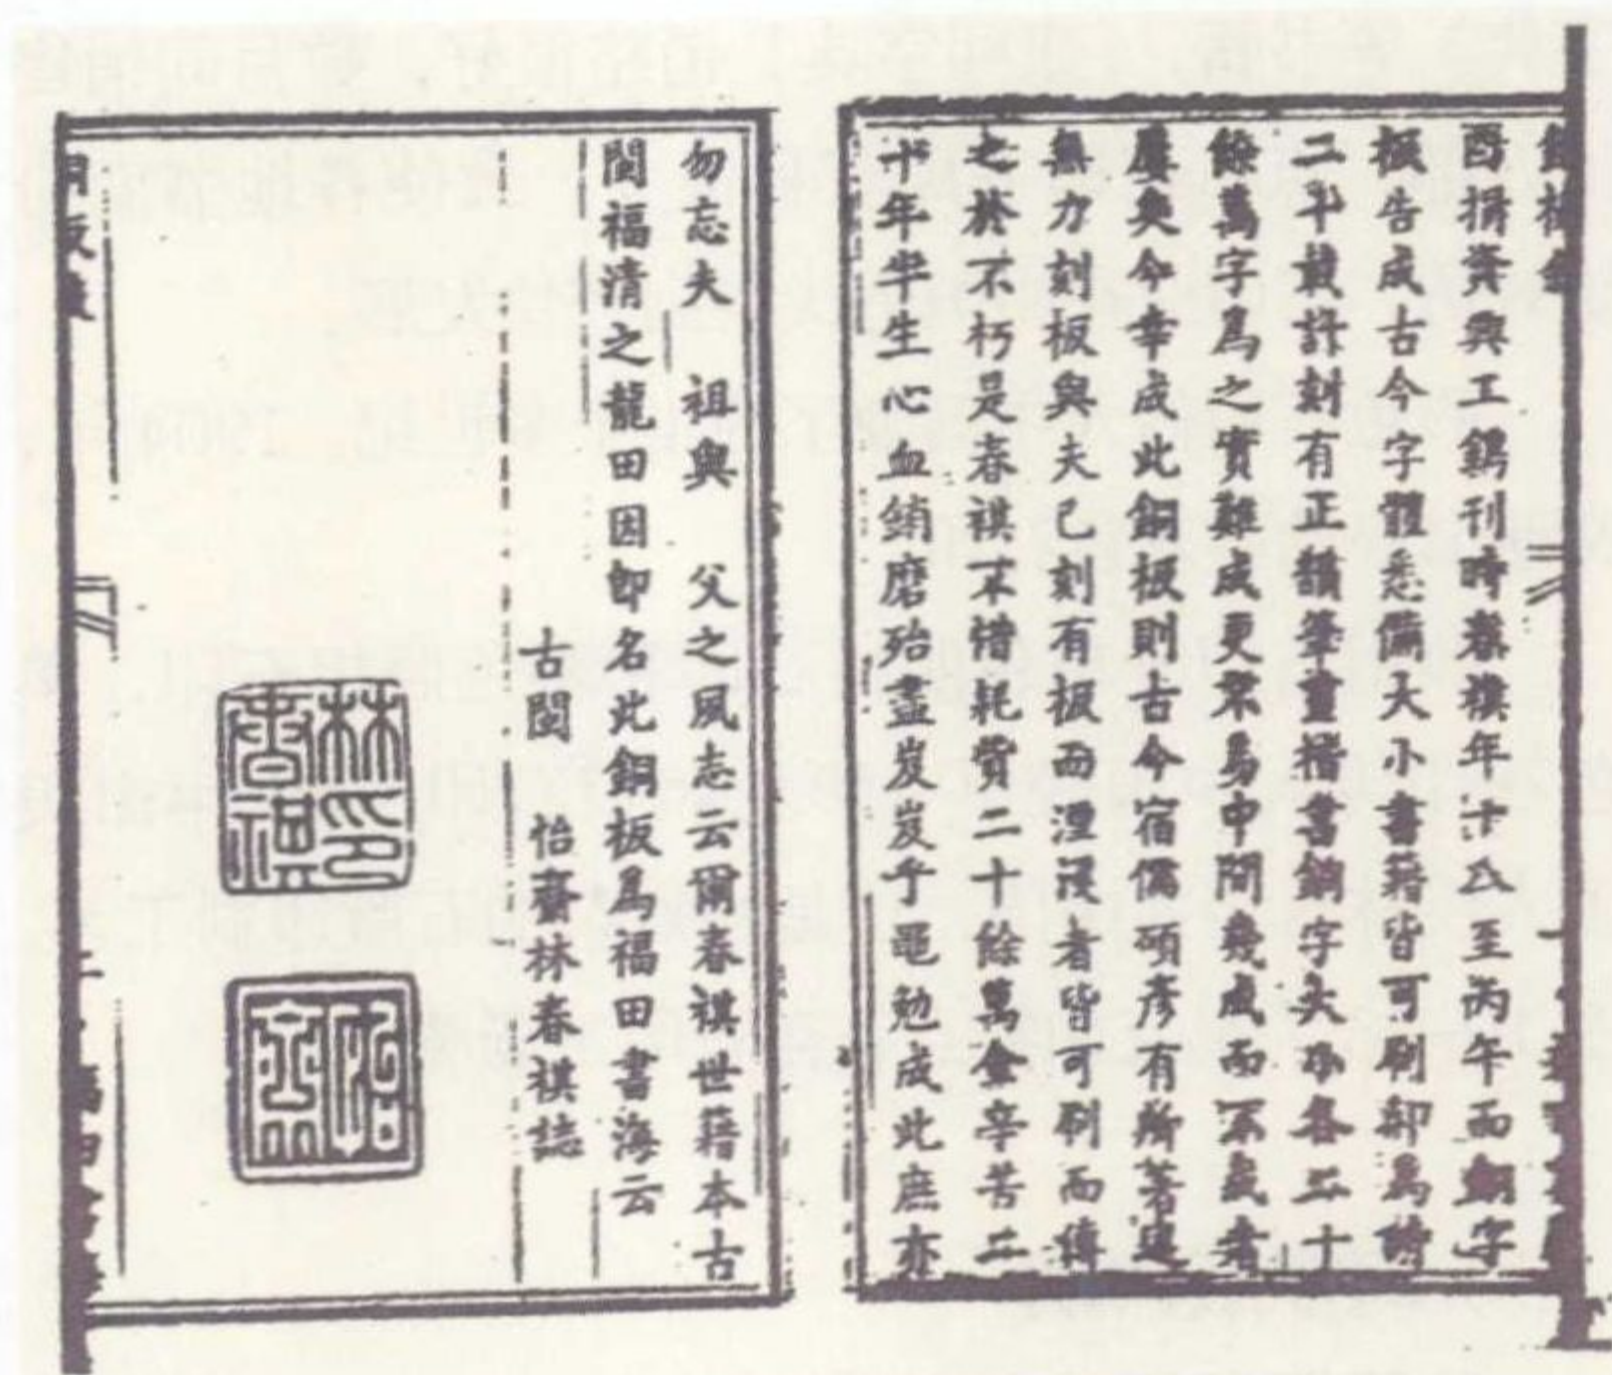 酉捐資興工鐫刊時春祺年十八至丙午而銅字
板告成古今字體悉備大小書籍皆可刷卸為時
二十載計刻有正韻筆畫楷書銅字大小各二十
餘萬字為之實難成更不易中間幾成而不成者
屢矣今幸成此銅板則古今宿儒碩彥有所著述
無力刻板與夫已刻有板而湮沒者皆可刷而傳
之於不朽是春祺不惜耗費二十餘萬金辛苦二
十年半生心血銷磨殆盡岌岌乎黽勉成此庶亦
勿忘夫 祖與 父之夙志云爾春祺世藉本古
閩福清之龍田因即名此銅板為福田書海云
古閩 怡齋林春祺誌
林春祺印
怡齋